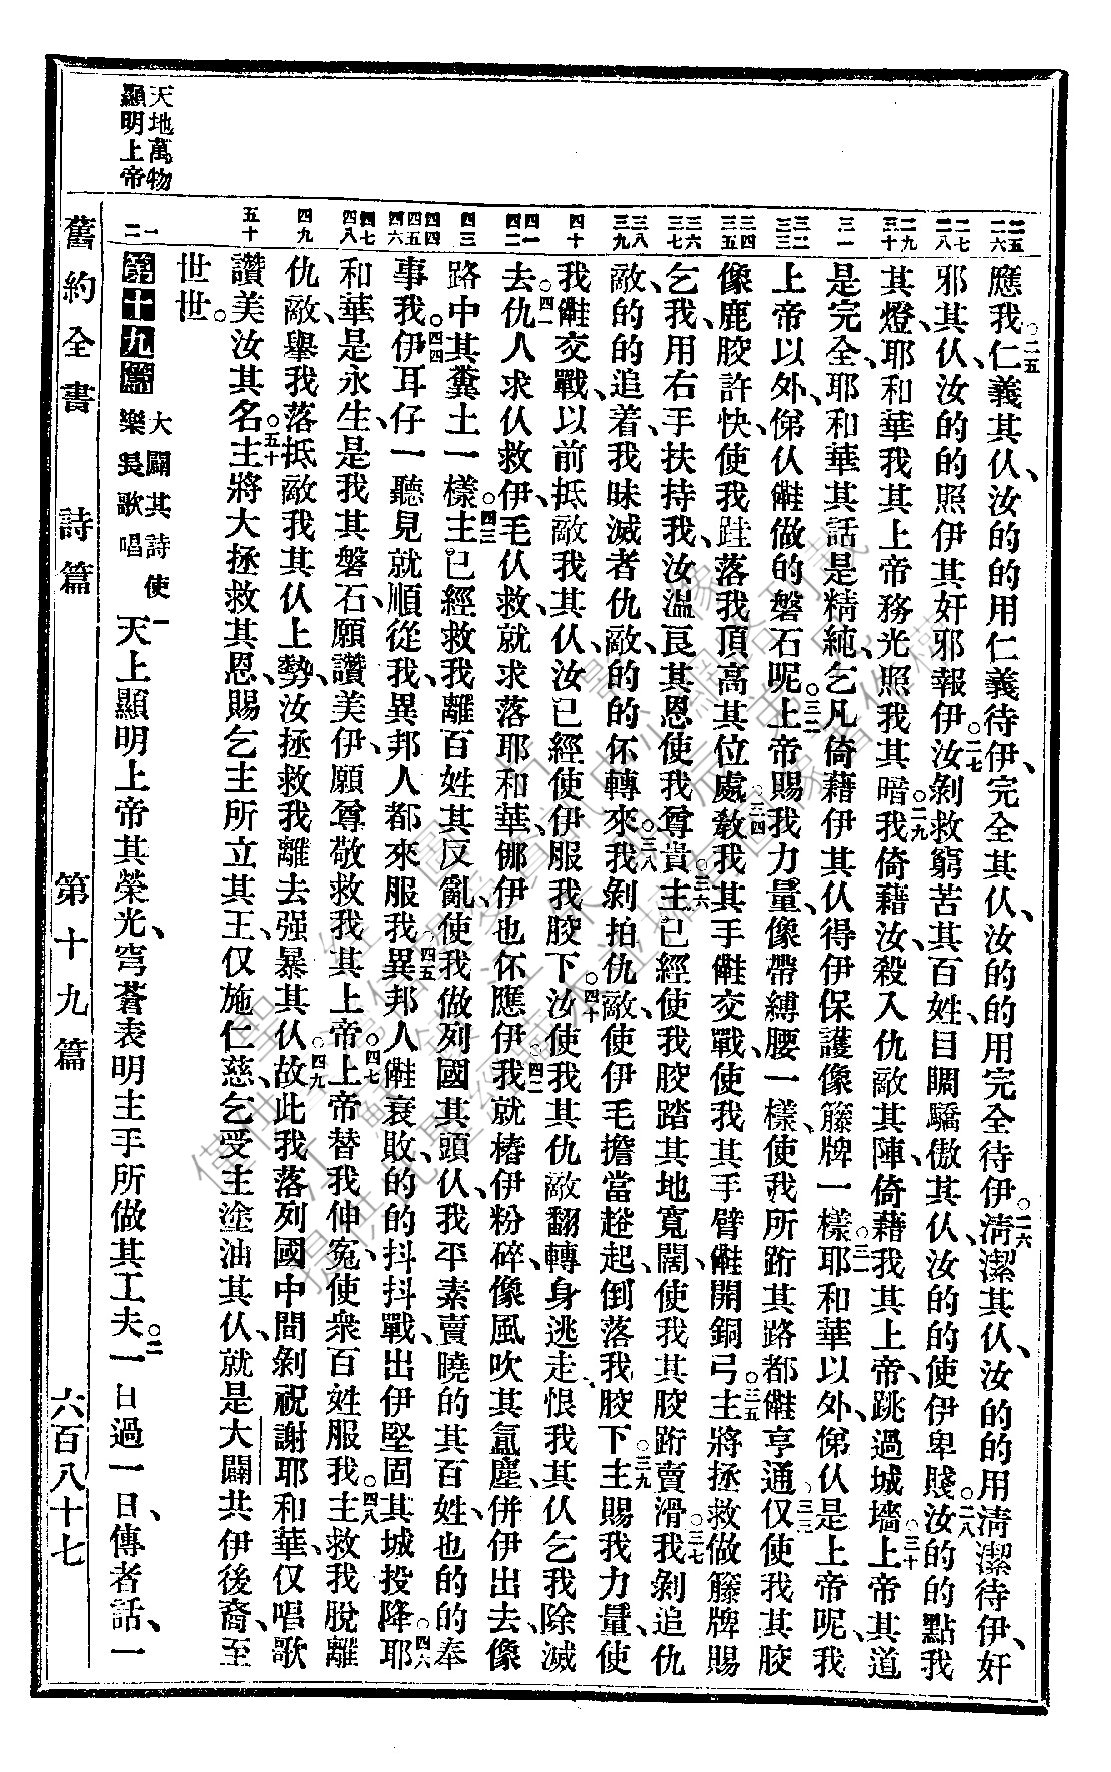 應我。二五仁義其仈、汝的的用仁義待伊、完全其仈、汝的的用完全待伊。二六淸潔其仈、汝的的用淸潔待伊、奸
邪其仈、汝的的照伊其奸邪報伊。二七汝剝救窮苦其百姓、目瞯驕傲其仈、汝的的使伊卑賤。二八汝的的點我
其燈、耶和華我其上帝務光照我其暗。二九我倚藉汝、殺入仇敵其陣、倚藉我其上帝、跳過城墻。三十上帝其道
是完全、耶和華其話是精純、乞凡倚藉伊其仈得伊保護像籐牌一樣。三一耶和華以外、俤仈是上帝呢、我
上帝以外、俤仈做的磐石呢。三二上帝賜我力量、像帶縛腰一樣、使我所跡其路都亨通。三三仅使我其骹
像鹿骹許快、使我跬落我頂高其位處。三四敎我其手交戰、使我其手臂開銅弓。三五主將拯救做籐牌賜
乞我、用右手扶持我、汝溫良其恩使我尊貴。三六主已經使我骹踏其地寬闊、使我其骹跡賣滑。三七我剝追仇
敵、的的追着、我昧滅者仇敵、的的伓轉來。三八我剝拍仇敵、使伊毛擔當𧺌起、倒落我骹下。三九主賜我力量、使
我交戰、以前抵敵我其仈、汝已經使伊服我骹下。四十汝使我其仇敵翻轉身逃走、恨我其仈乞我除滅
去。四一仇人求仈救伊、毛仈救、就求落耶和華、㑚伊也伓應伊。四二我就樁伊粉碎、像風吹其氳塵、倂伊出去、像
路中其糞土一樣。四三主已經救我離百姓其反亂、使我做列國其頭、仈我平素賣曉的其百姓、也的的奉
事我。四四伊耳仔一聽見就順從我、異邦人都來服我。四五異邦人衰敗、的的抖抖戰、出伊堅固其城投降。四六耶
和華是永生、是我其磐石、願讚美伊、願尊敬救我其上帝。四七上帝替我伸寃、使衆百姓服我。四八主救我脫離
仇敵、擧我落抵敵我其仈上勢、汝拯救我離去强暴其仈。四九故此我落列國中間剝祝謝耶和華、仅唱歌
讚美汝其名。五十主將大拯救其恩、賜乞主所立其王、仅施仁慈、乞受主塗油其仈、就是大闢共伊後裔、至
世世。
第十九篇 大闢其詩使樂長歌唱
一天上顯明上帝其榮光、穹蒼表明主手所做其工夫。二一日過一日傳者話、一
天地萬物
顯明上帝
二五
二六
二七
二八
二九
三十
三一
三二
三三
三四
三五
三六
三七
三八
三九
四十
四一
四二
四三
四四
四五
四六
四七
四八
四九
五十
一
二
舊約全書 詩篇 第十九篇 六百八十七